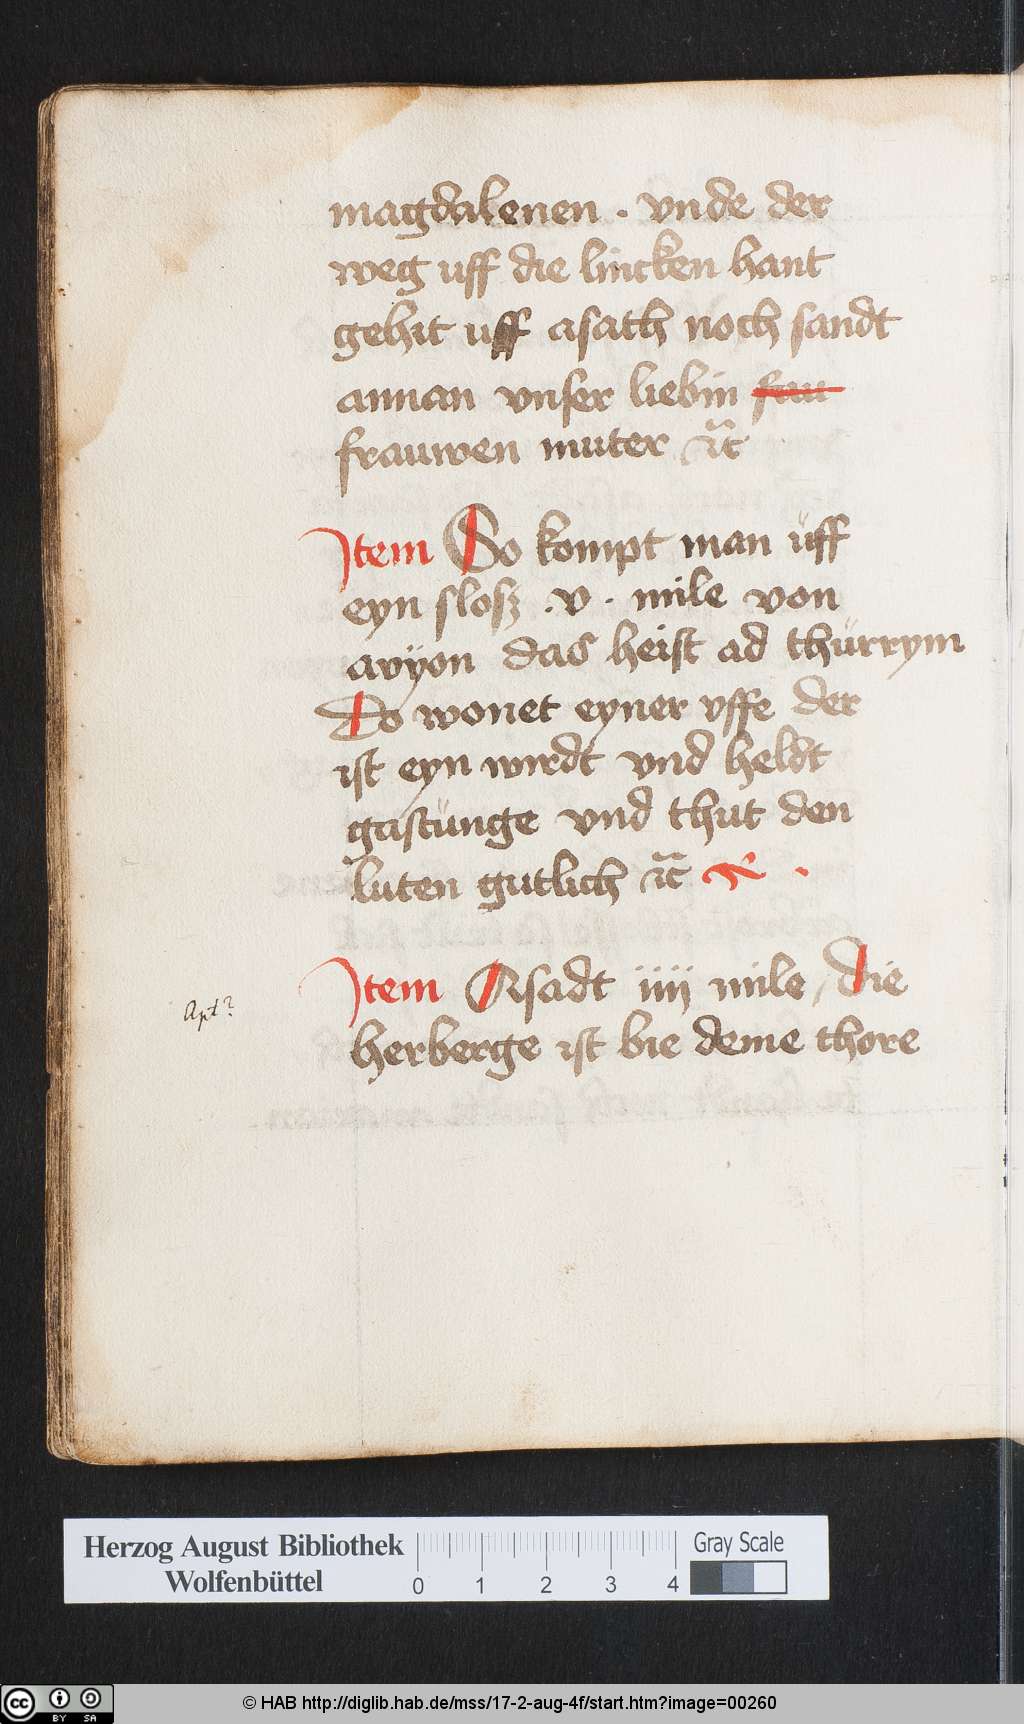 magdalenen . vnde der
weg uff die lincken hant
gehit uff asath noch sandt
annan vnser liebin frau
frauwen muter ꝛc̃
Item So kompt man üff
eyn slosz .v. mile von
avÿon das heist ad thürrym
Do wonet eyner vffe der
ist eyn wirdt vnd heldt
gastünge vnd thut den
luten gutlich ꝛc̃ .
Item Asadt iiij mile / die
Apt?
herberge ist bie deme thore
Herzog August Bibliothek
Wolfenbüttel
0 1 2 3 4
Gray Scale
cc BY SA
© HAB http://diglib.hab.de/mss/17-2-aug-4f/start.htm?image=00260